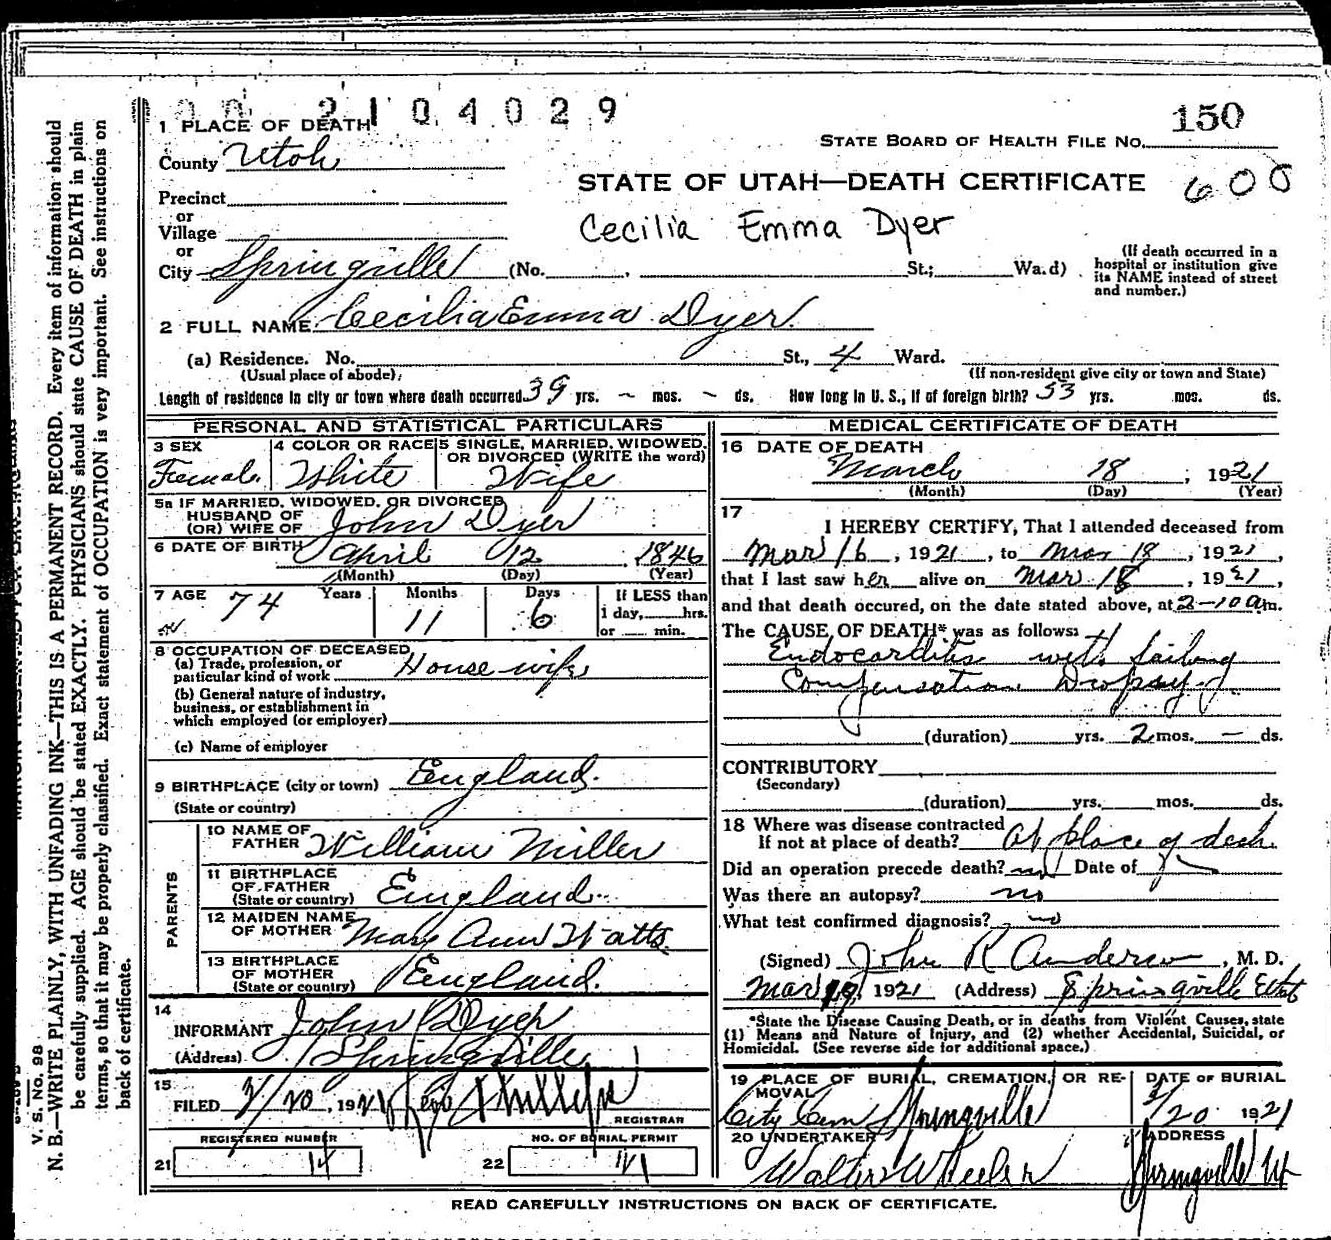 2104029
150
STATE BOARD OF HEALTH FILE No.
600
1 PLACE OF DEATH
County Utah
STATE OF UTAH—DEATH CERTIFICATE
Precinct
or
Village
Cecilia Emma Dyer
or
City Springville (No. , St.; Wa.d)
(If death occurred in a hospital or institution give its NAME instead of street and number.)
2 FULL NAME Cecilia Emma Dyer
(a) Residence. No. St., 4 Ward.
(Usual place of abode) (If non-resident give city or town and State)
Length of residence in city or town where death occurred 39 yrs. – mos. – ds. How long in U. S., if of foreign birth? 53 yrs. mos. ds.
PERSONAL AND STATISTICAL PARTICULARS
3 SEX
Female
4 COLOR OR RACE
White
5 SINGLE, MARRIED, WIDOWED, OR DIVORCED (WRITE the word)
Wife
5a IF MARRIED, WIDOWED, OR DIVORCED
HUSBAND OF
(OR) WIFE OF John Dyer
6 DATE OF BIRTH April 12, 1846
(Month) (Day) (Year)
7 AGE 74 Years 11 Months 6 Days
If LESS than
1 day, hrs.
or min.
8 OCCUPATION OF DECEASED
(a) Trade, profession, or
particular kind of work House wife
(b) General nature of industry,
business, or establishment in
which employed (or employer)
(c) Name of employer
9 BIRTHPLACE (city or town) England.
(State or country)
PARENTS
10 NAME OF
FATHER William Miller
11 BIRTHPLACE
OF FATHER
(State or country) England.
12 MAIDEN NAME
OF MOTHER Mary Ann Watts
13 BIRTHPLACE
OF MOTHER
(State or country) England.
14
INFORMANT John Dyer
(Address) Springville
15
FILED 3/20, 1921 Phillips
REGISTRAR
REGISTERED NUMBER
21 14
NO. OF BURIAL PERMIT
22
MEDICAL CERTIFICATE OF DEATH
16 DATE OF DEATH
March 18, 1921
(Month) (Day) (Year)
17
I HEREBY CERTIFY, That I attended deceased from
Mar 16, 1921, to Mar 18, 1921,
that I last saw her alive on Mar 18, 1921,
and that death occured, on the date stated above, at 2-10 a.m.
The CAUSE OF DEATH* was as follows:
Endocarditis with failing
Compensation Dropsy
(duration) yrs. 2 mos. – ds.
CONTRIBUTORY
(Secondary)
(duration) yrs. mos. ds.
18 Where was disease contracted
If not at place of death? At place of death.
Did an operation precede death? no Date of
Was there an autopsy? no
What test confirmed diagnosis? no
(Signed) John R Anderson, M. D.
Mar 19, 1921 (Address) Springville Utah
*State the Disease Causing Death, or in deaths from Violent Causes, state
(1) Means and Nature of Injury, and (2) whether Accidental, Suicidal, or
Homicidal. (See reverse side for additional space.)
19 PLACE OF BURIAL, CREMATION, OR RE-
MOVAL
City Cem Springville
DATE OF BURIAL
3/20 1921
20 UNDERTAKER
Walter Wheeler
ADDRESS
Springville Ut
READ CAREFULLY INSTRUCTIONS ON BACK OF CERTIFICATE.
V. S. No. 98
N. B.—WRITE PLAINLY, WITH UNFADING INK—THIS IS A PERMANENT RECORD. Every item of information should
be carefully supplied. AGE should be stated EXACTLY. PHYSICIANS should state CAUSE OF DEATH in plain
terms, so that it may be properly classified. Exact statement of OCCUPATION is very important. See instructions on
back of certificate.